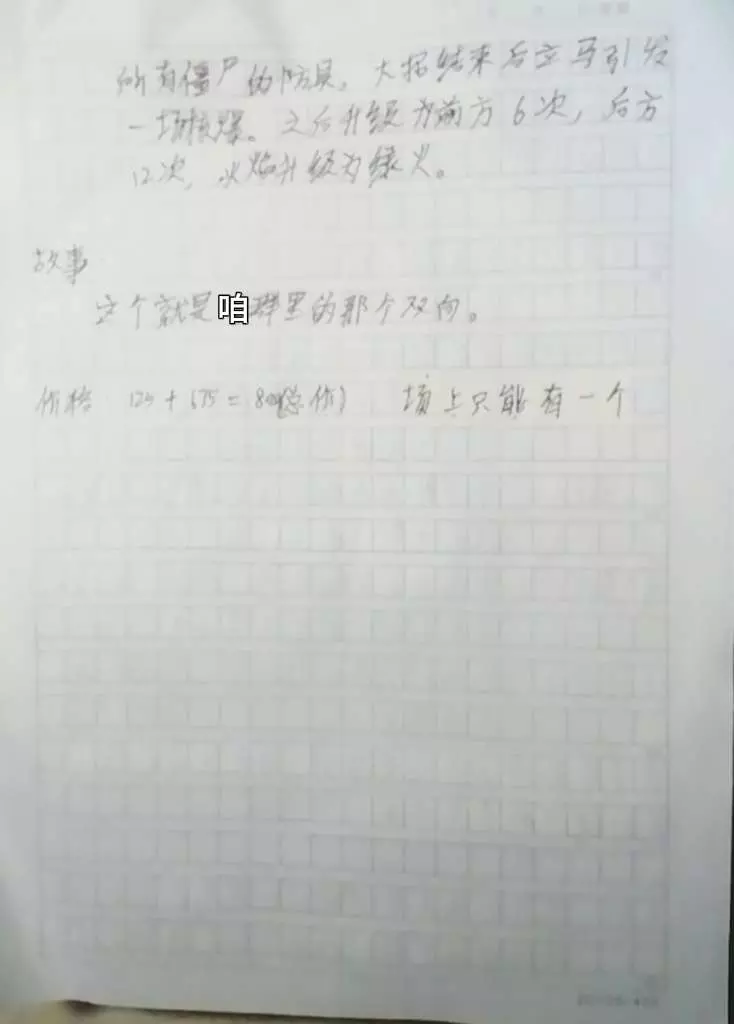 所有僵尸的防具。大招结束后立马引发
一场核爆。之后升级为前方6次，后方
12次，火焰升级为绿火。
故事
这个就是咱群里的那个双向。
价格 125+675=800(总价) 场上只能有一个